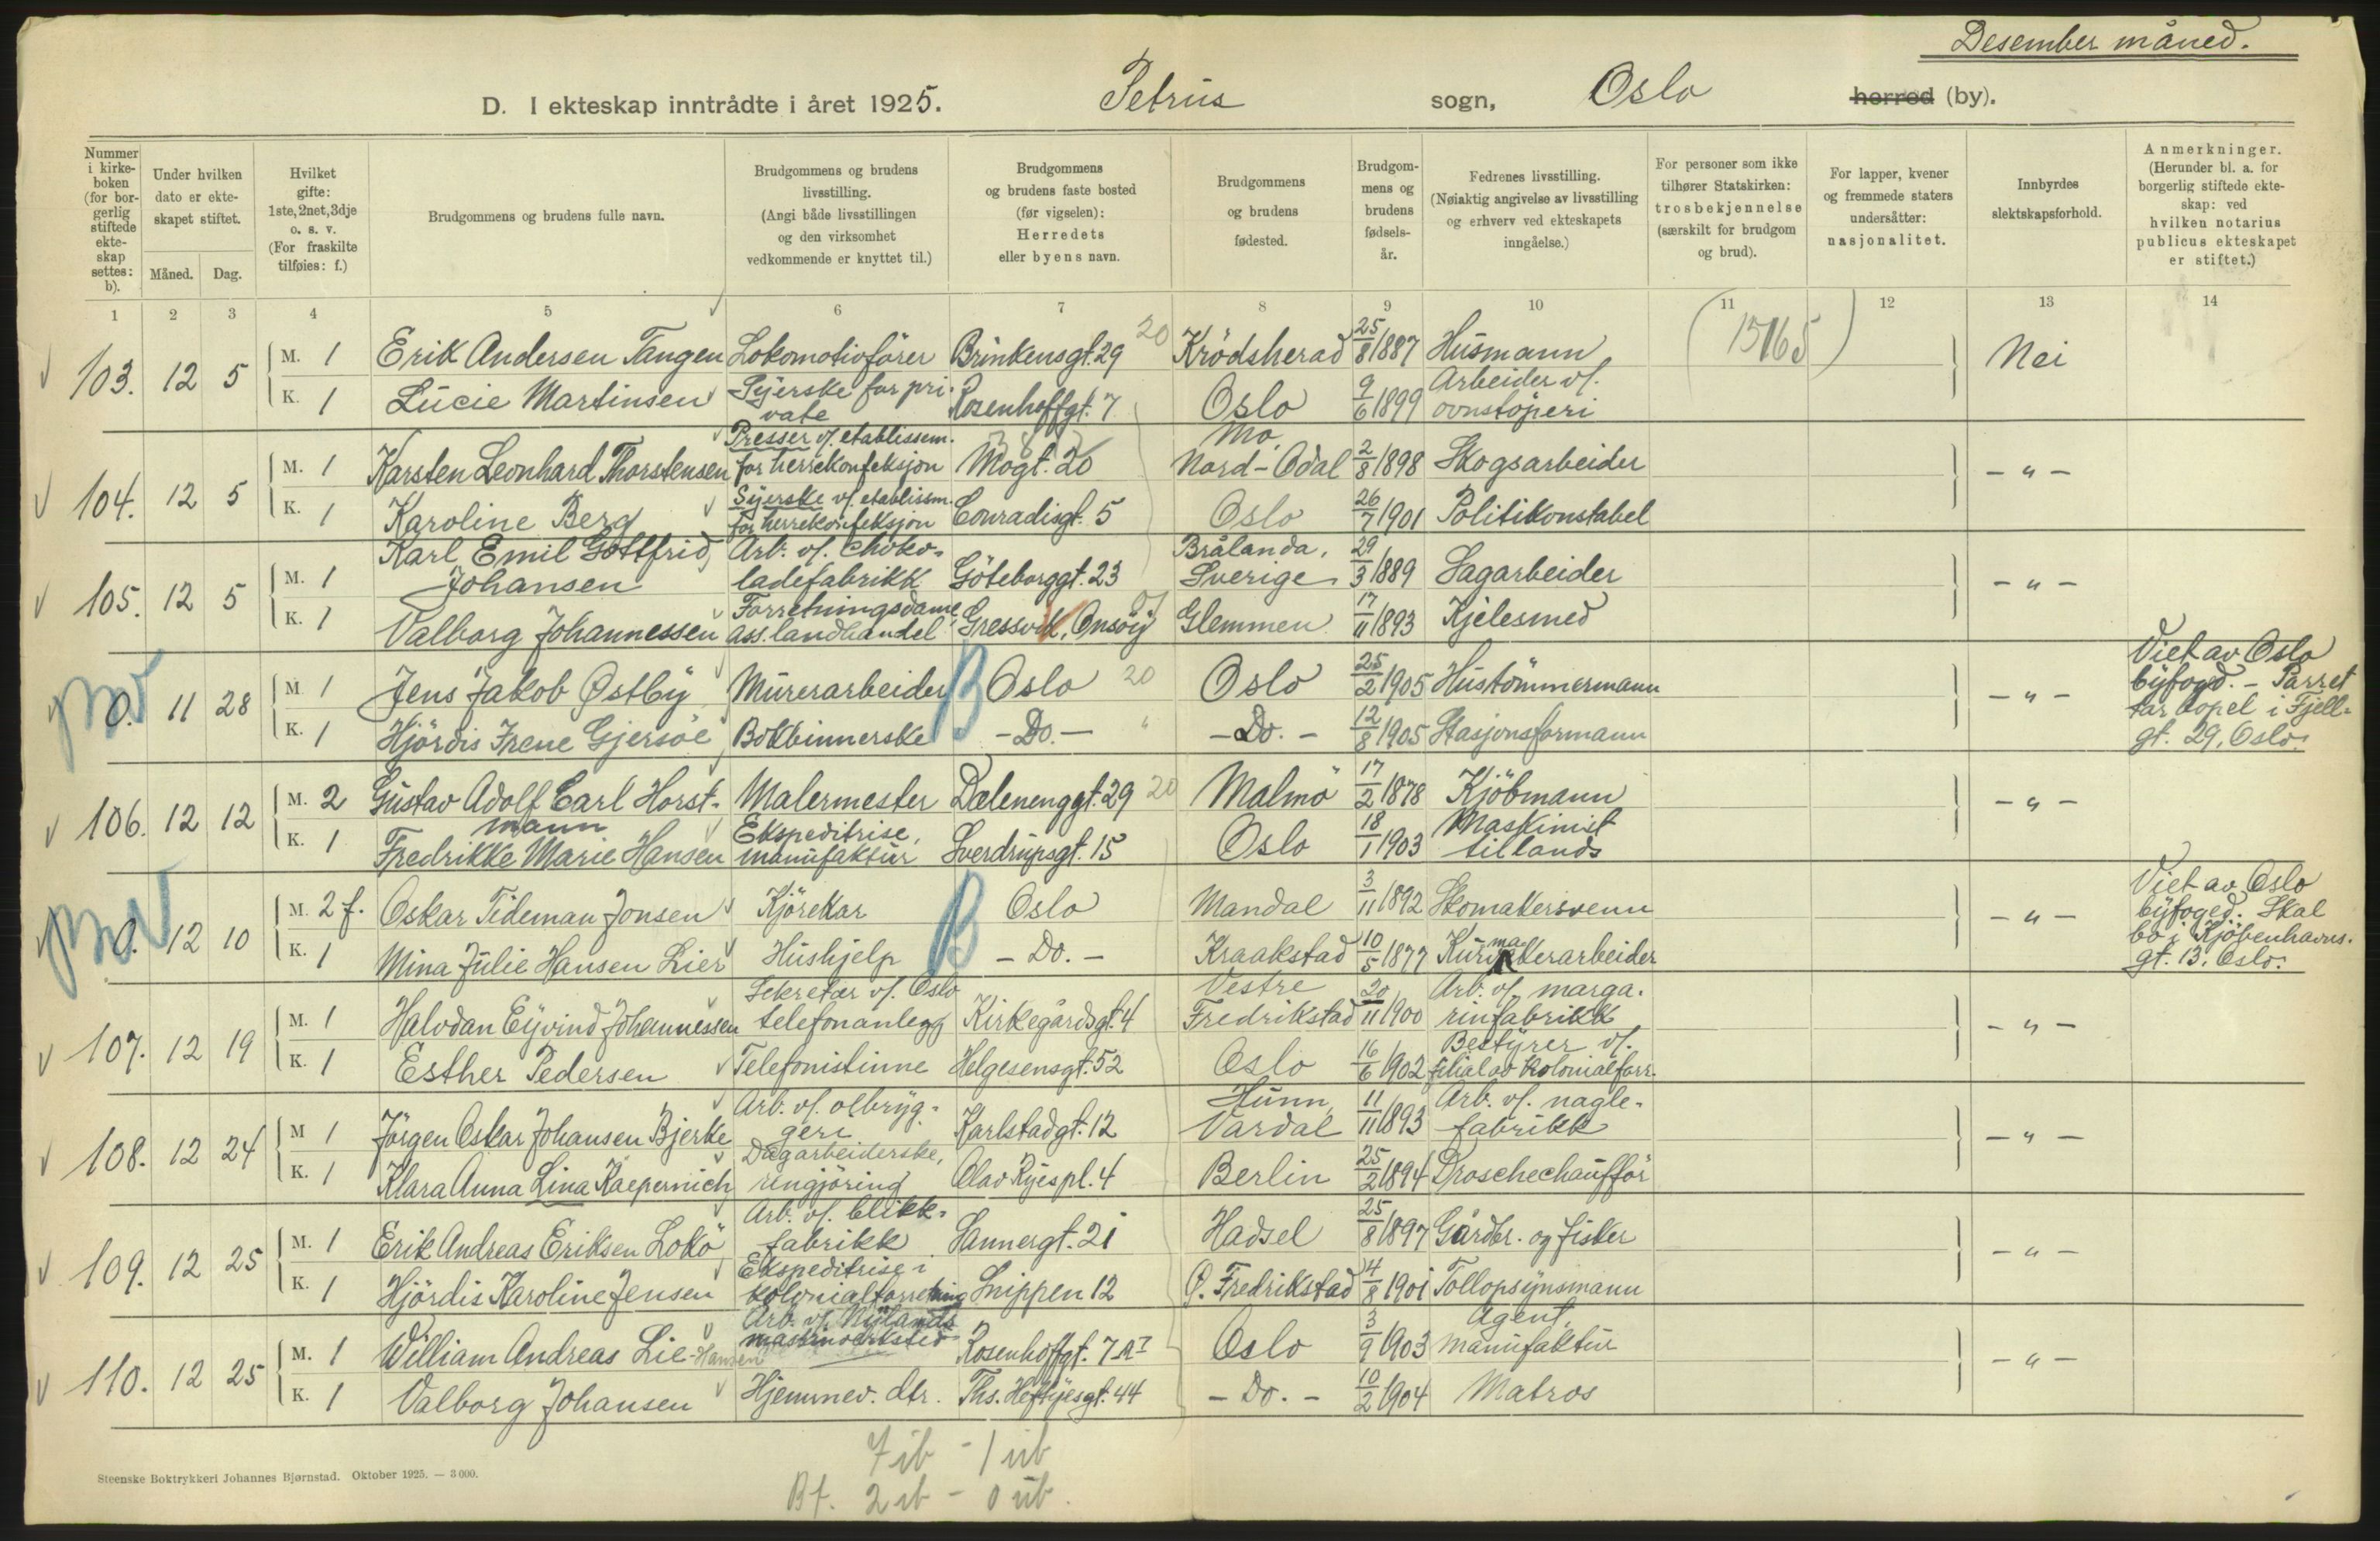 Desember måned.
D. I ekteskap inntrådte i året 1925. Petrus sogn, Oslo herred (by).
Nummer i kirke-boken (for bor-gerlig stiftede ekte-skap settes: b).
Under hvilken dato er ekte-skapet stiftet.
Måned. Dag.
Hvilket gifte: 1ste, 2net, 3dje o. s. v. (For fraskilte tilføies: f.)
Brudgommens og brudens fulle navn.
Brudgommens og brudens livsstilling. (Angi både livsstillingen og den virksomhet vedkommende er knyttet til.)
Brudgommens og brudens faste bosted (før vigselen): Herredets eller byens navn.
Brudgommens og brudens fødested.
Brudgom-mens og brudens fødsels-år.
Fedrenes livsstilling. (Nøiaktig angivelse av livsstilling og erhverv ved ekteskapets inngåelse.)
For personer som ikke tilhører Statskirken: trosbekjennelse (særskilt for brudgom og brud).
For lapper, kvener og fremmede staters undersåtter: nasjonalitet.
Innbyrdes slektskapsforhold.
Anmerkninger. (Herunder bl. a. for borgerlig stiftede ekte-skap: ved hvilken notarius publicus ekteskapet er stiftet.)
1 2 3 4 5 6 7 8 9 10 11 12 13 14
103. 12 5 M. 1 Erik Andersen Tangen Lokomotivfører Brinkensgt. 29 20 Krödsherad 25/8 1887 Husmann (15165) Nei
K. 1 Lucie Martinsen Syerske for pri-vate Rosenhoffgt. 7 Oslo 9/6 1899 Arbeider v/. ovnstöperi
104. 12 5 M. 1 Karsten Leonhard Thorstensen Presser v/. etablissem. for herrekonfeksjon Mogt. 20 Mo, Nord-Odal 2/8 1898 Skogsarbeider - " -
K. 1 Karoline Berg Syerske v/. etablissm. for herrekonfeksjon Conradisgt. 5 Oslo 26/7 1901 Politikonstabel
105. 12 5 M. 1 Karl Emil Gottfrid Johansen Arb. v/. choko-ladefabrikk Göteborggt. 23 Brålanda, Sverige 29/3 1889 Sagarbeider - " -
K. 1 Valborg Johannessen Forretningsdame, ass. landhandel Gressvik, Onsöy Glemmen 17/11 1893 Kjelesmed
0. 11 28 M. 1 Jens Jakob Østby Murerarbeider B Oslo 20 Oslo 25/2 1905 Hustömmermann - " - Viet av Oslo byfogd. - Parret tar bopel i Fjell-gt. 29, Oslo.
K. 1 Hjördis Irene Gjersöe Bokbinnerske - Do. - " - Do. - 12/8 1905 Stasjonsformann
106. 12 12 M. 2 Gustav Adolf Carl Horst-mann Malermester Dælenenggt. 29 20 Malmö 17/2 1878 Kjöbmann - " -
K. 1 Fredrikke Marie Hansen Ekspeditrise, manufaktur Sverdrupsgt. 15 Oslo 18/1 1903 Maskinist tillands
0. 12 10 M. 2 f. Oskar Tideman Jonsen Kjörekar B Oslo Mandal 3/11 1892 Skomakersvenn - " - Viet av Oslo byfoged. Skal bo i Kjöbenhavns-gt. 13, Oslo.
K. 1 Mina Julie Hansen Lier Hushjelp - Do. - Kraakstad 10/5 1877 Kurvmakerarbeider
107. 12 19 M. 1 Halvdan Eyvind Johannessen Sekretær v/. Oslo telefonanlegg Kirkegårdsgt. 4 Vestre Fredrikstad 20/11 1900 Arb. v/. marga-rinfabrikk - " -
K. 1 Esther Pedersen Telefonistinne Helgesensgt. 52 Oslo 16/6 1902 Bestyrer v/. filial av kolonialforr.
108. 12 24 M 1 Jörgen Oskar Johansen Bjerke Arb. v/. ølbryg-geri Karlstadgt. 12 Hunn, Vardal 11/11 1893 Arb. v/. nagle-fabrikk - " -
K. 1 Klara Anna Lina Kaepernich Dagarbeiderske, rengjöring Olav Ryes pl. 4 Berlin 25/2 1894 Droschechaufför
109. 12 25 M. 1 Erik Andreas Eriksen Lokö Arb. v/. blikk-fabrikk Sannergt. 21 Hadsel 25/8 1897 Gårdbr. og fisker - " -
K. 1 Hjördis Karoline Jensen Ekspeditrise i kolonialforretning Snippen 12 Ø. Fredrikstad 4/8 1901 Tollopsynsmann
110. 12 25 M. 1 William Andreas Lie-Hansen Arb. v/. Nylands maskinverksted Rosenhoffgt. 7 A I Oslo 3/9 1903 Agent, manufaktur - " -
K. 1 Valborg Johansen Hjemmev. dtr. Ths. Heftyesgt. 44 - Do. - 10/2 1904 Matros
7 ib - 1 ub
Bf. 2 ib - 0 ub.
Steenske Boktrykkeri Johannes Bjørnstad. Oktober 1925. — 3000.